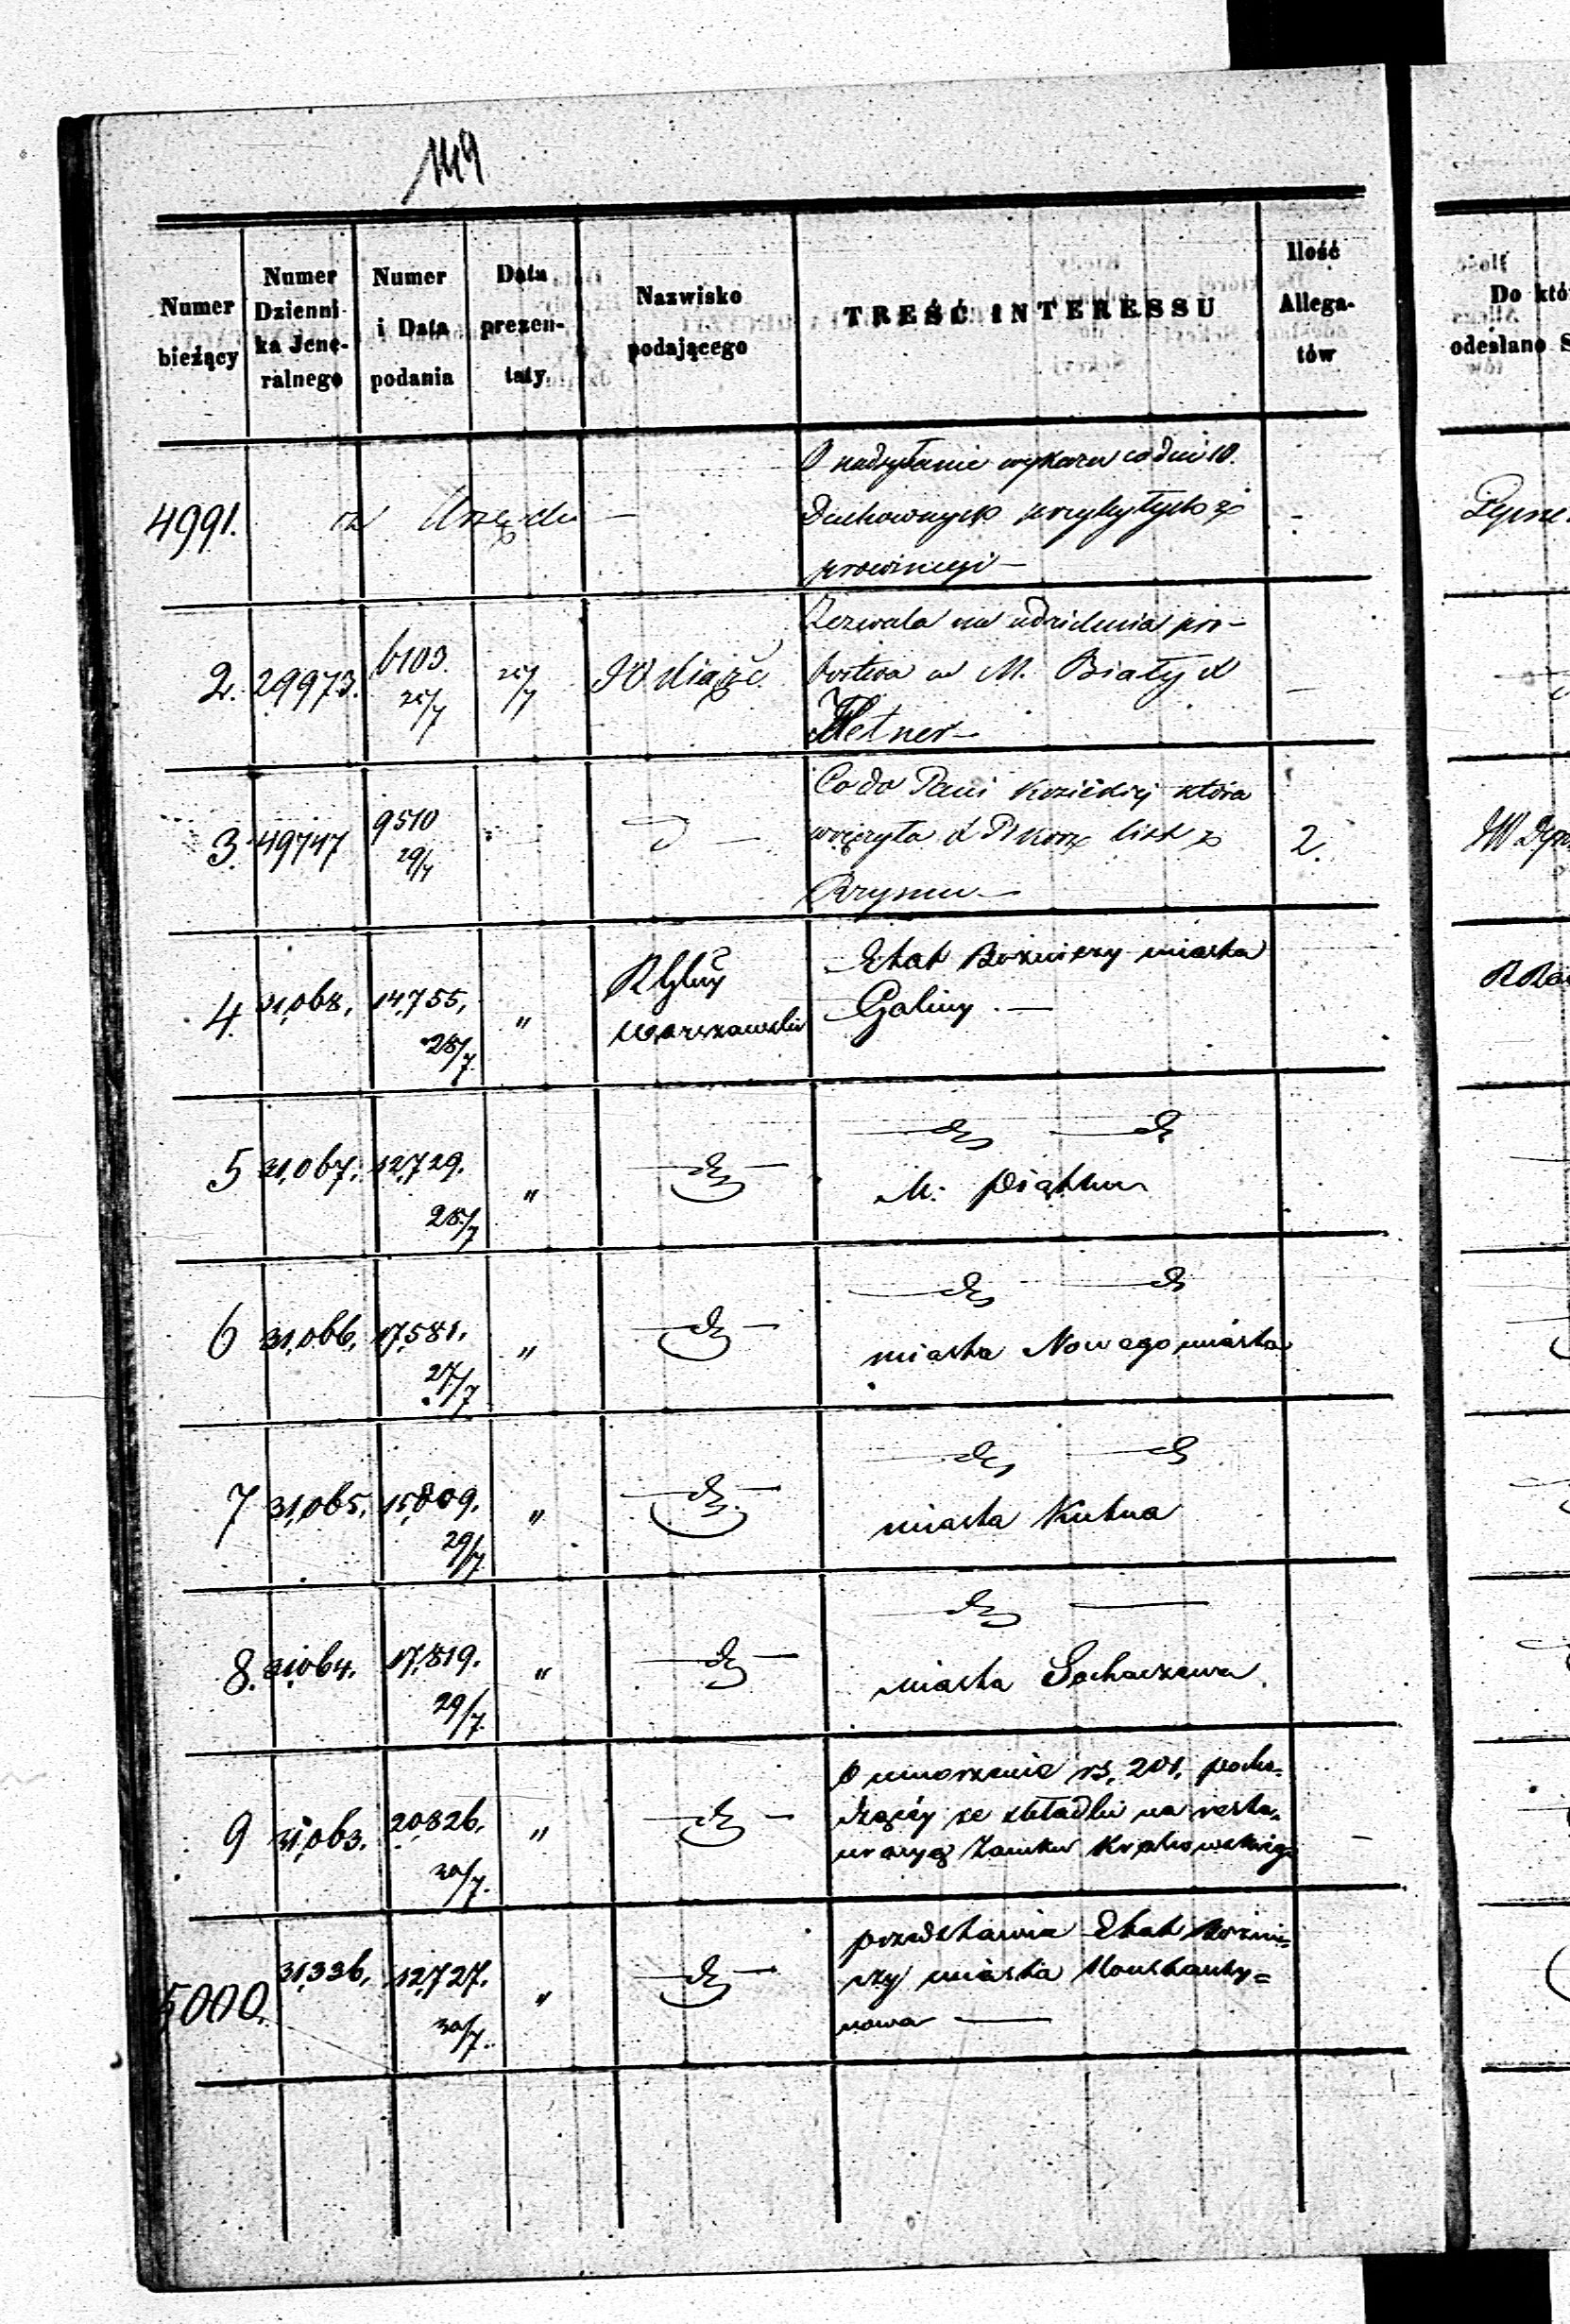 149
Numer bieżący
Numer Dzienni- ka Jene- ralnego
Numer i Data podania
Data prezen- taty.
Nazwisko podającego
TREŚĆ INTERESSU
Ilość Allega- tów
Do któ
odesłano S
4991. z Urzędu —
O nadsyłanie wykazu co dni 10.
Duchownych przybyłych z
prowincyi —
2. 29973. 6103. 25/7 25/7
Zezwala na udzielenia pro-
bostwa w M. Biały X
Hetner —
3. 49747 9510 29/7
Co do Pani która
wręczyła X list z
Rzymu — 2.
4. 31,068. 14,755. 28/7 "
Warszawski
Etat Bożniczy miasta
Galiny. —
5 31,067. 12,729. 28/7 " — d° —
— d° — d°
M. Piątku
6 31,066. 17,581. 27/7 " — d° —
— d° — d°
miasta Nowego miasta
7 31,065. 15,809. 29/7 " — d° —
— d° — d°
miasta Kutna
8. 31,064. 17,819. 29/7. " — d° —
— d° —
miasta Sochaczewa.
9 31,063. 20,826. 30/7. " — d° —
O umorzenie rs. 201. pocho-
dzącéy ze składki na resta-
uracyą Zamku Krakowskiego —
5000. 31,336. 12,727. 30/7. " — d° —
przedstawia Etat Bożni-
czy miasta Konstanty=
nowa —